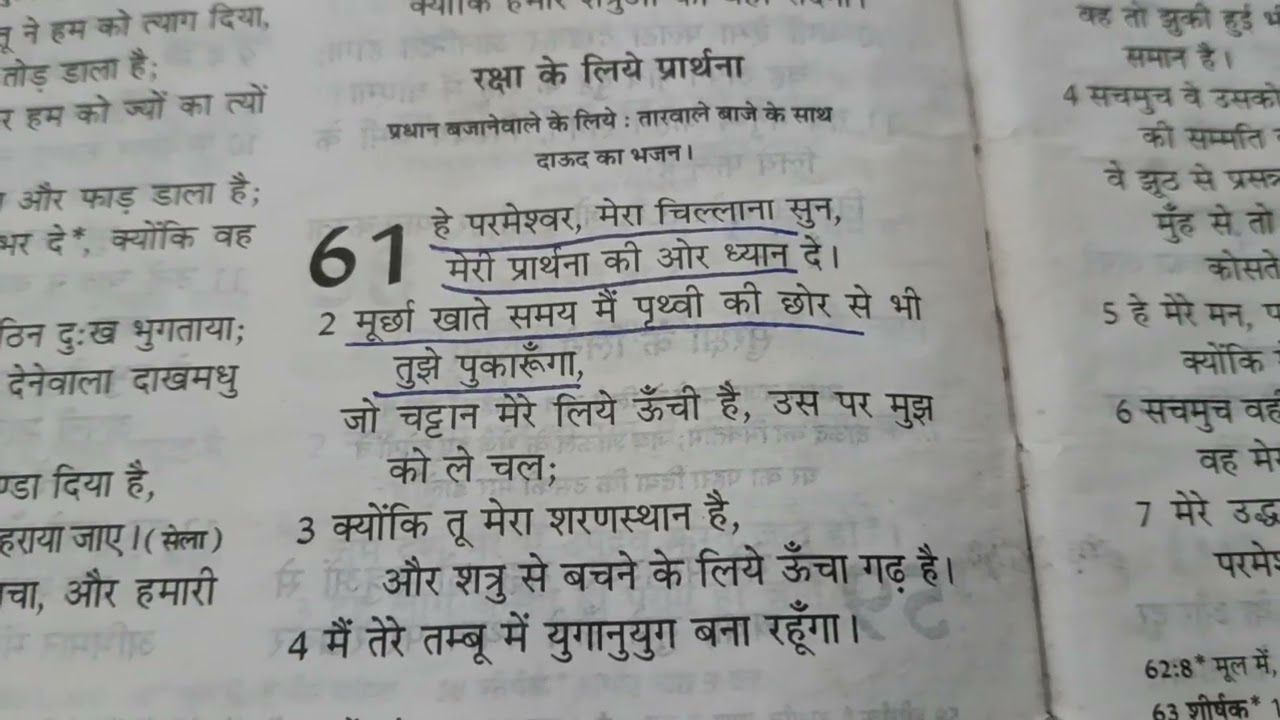 तू ने हम को त्याग दिया,
तोड़ डाला है;
हम को ज्यों का त्यों
और फाड़ डाला है;
भर दे*, क्योंकि वह
दुःख भुगताया;
देनेवाला दाखमधु
दिया है,
जाए।(सेला)
और हमारी
रक्षा के लिये प्रार्थना
प्रधान बजानेवाले के लिये : तारवाले बाजे के साथ
दाऊद का भजन।
61 हे परमेश्वर, मेरा चिल्लाना सुन,
मेरी प्रार्थना की ओर ध्यान दे।
2 मूर्छा खाते समय मैं पृथ्वी की छोर से भी
तुझे पुकारूँगा,
जो चट्टान मेरे लिये ऊँची है, उस पर मुझ
को ले चल;
3 क्योंकि तू मेरा शरणस्थान है,
और शत्रु से बचने के लिये ऊँचा गढ़ है।
4 मैं तेरे तम्बू में युगानुयुग बना रहूँगा।
वह तो झुकी हुई
समान है।
4 सचमुच वे उसको
की सम्मति
वे झूठ से प्रसन्न
मुँह से तो
कोसते
5 हे मेरे मन,
क्योंकि
6 सचमुच वही
वह मेरा
7 मेरे
62:8* मूल में,
63 शीर्षक*